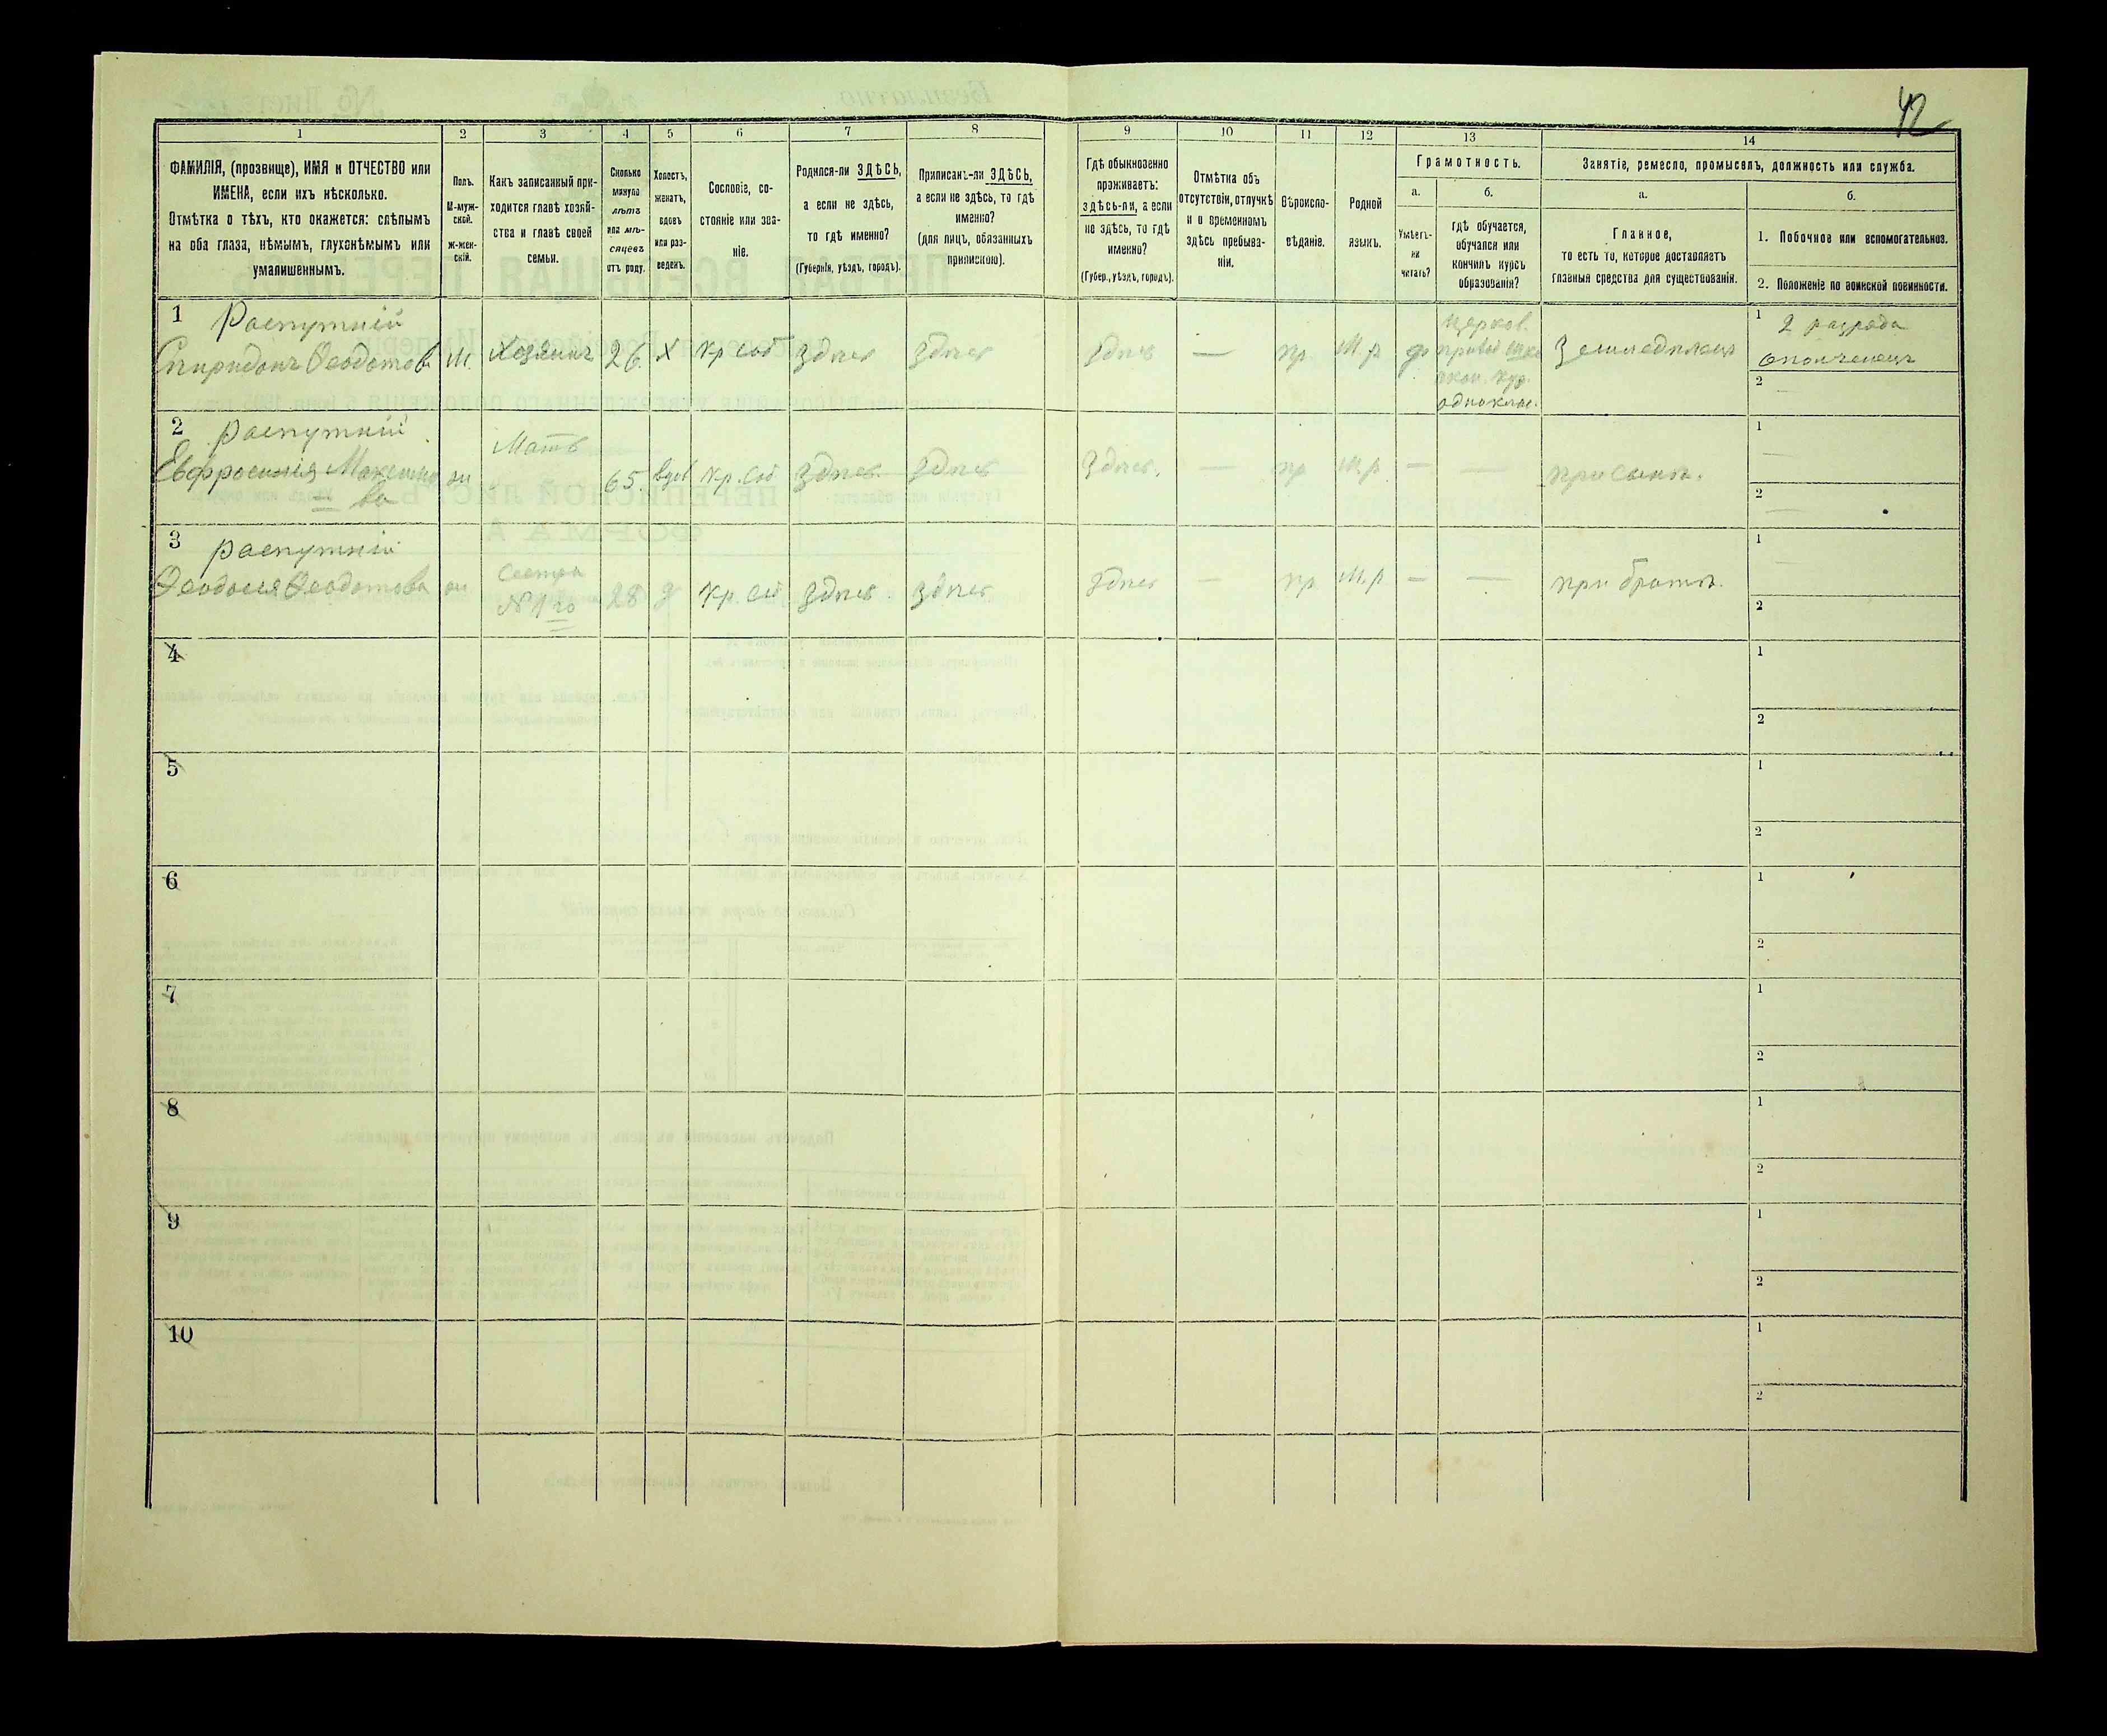 42
1 2 3 4 5 6 7 8 9 10 11 12 13 14
ФАМИЛІЯ, (прозвище), ИМЯ и ОТЧЕСТВО или
ИМЕНА, если ихъ нѣсколько.
Отмѣтка о тѣхъ, кто окажется: слѣпымъ
на оба глаза, нѣмымъ, глухонѣмымъ или
умалишеннымъ.
Полъ.
М-муж-
ской.
Ж-жен-
скій.
Какъ записанный при-
ходится главѣ хозяй-
ства и главѣ своей
семьи.
Сколько
минуло
лѣтъ
или мѣ-
сяцевъ
отъ роду.
Холостъ,
женатъ,
вдовъ
или раз-
веденъ.
Сословіе, со-
стояніе или зва-
ніе.
Родился-ли ЗДѢСЬ,
а если не здѣсь,
то гдѣ именно?
(Губернія, уѣздъ, городъ).
Приписанъ-ли ЗДѢСЬ,
а если не здѣсь, то гдѣ
именно?
(для лицъ, обязанныхъ
припискою).
Гдѣ обыкновенно
проживаетъ:
здѣсь-ли, а если
не здѣсь, то гдѣ
именно?
(Губер., уѣздъ, городъ).
Отмѣтка объ
отсутствіи, отлучкѣ
и о временномъ
здѣсь пребыва-
ніи.
Вѣроиспо-
вѣданіе.
Родной
языкъ.
Грамотность.
а.
Умѣетъ-
ли
читать?
б.
гдѣ обучается,
обучался или
кончилъ курсъ
образованія?
Занятіе, ремесло, промыселъ, должность или служба.
а.
Главное,
то есть то, которое доставляетъ
главныя средства для существованія.
б.
1. Побочное или вспомогательное.
2. Положеніе по воинской повинности.
1 Распутній
Спиридонъ Ѳеодотов М. Хозяинъ 26. Х кр. соб здѣсь здѣсь здѣсь — пр М.р
Церков.
окон. кур.
однокласс.
Земледѣлецъ
1 2 разряда
ополченецъ
2 —
2 Распутній
Евфросинія Максимо
ва
ж Мать 65 вдов кр. соб здѣсь здѣсь здѣсь. — пр М.р — — при сынѣ.
1 —
2 —
3 Распутній
Ѳеодосія Ѳеодотова ж Сестра
№ 1го
28 д кр. соб здѣсь здѣсь здѣсь — пр М.р — — при братѣ.
1 —
2
4
1
2
5
1
2
6
1
2
7
1
2
8
1
2
9
1
2
10
1
2